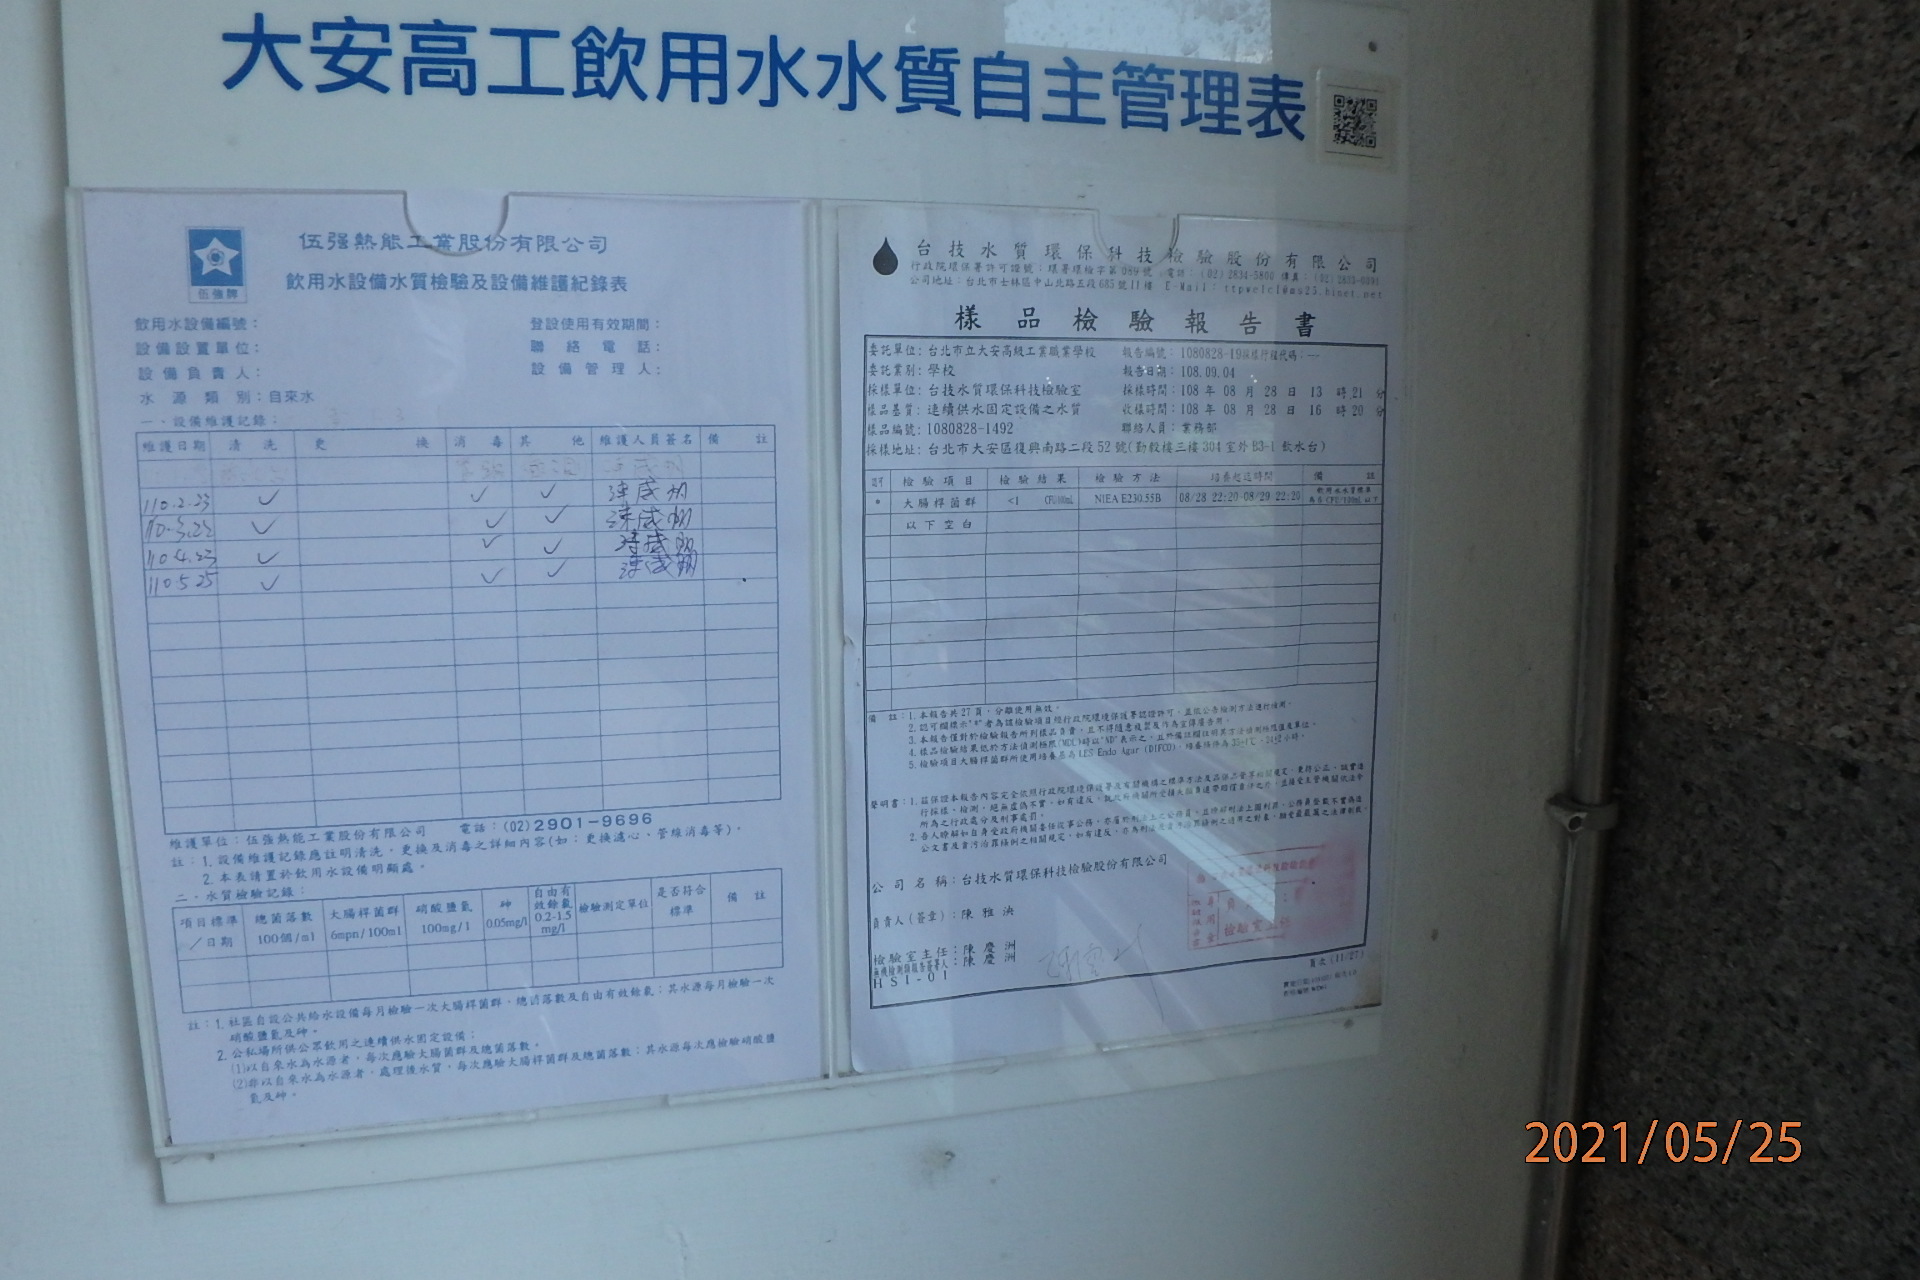 大安高工飲用水水質自主管理表
伍強牌
伍强熱能工業股份有限公司
飲用水設備水質檢驗及設備維護紀錄表
飲用水設備編號：
登設使用有效期間：
設備設置單位：
聯絡電話：
設備負責人：
設備管理人：
水源類別：自來水
一、設備維護記錄：
維護日期 清洗 更換 消毒 其他 維護人員簽名 備註
110.2.23 ✓ ✓ ✓
110.3.23 ✓ ✓ ✓
110.4.23 ✓ ✓ ✓
110.5.25 ✓ ✓ ✓
維護單位：伍強熱能工業股份有限公司 電話：(02)2901-9696
註：1.設備維護記錄應註明清洗，更換及消毒之詳細內容(如：更換濾心、管線消毒等)。
2.本表請置於飲用水設備明顯處。
二、水質檢驗記錄：
項目標準／日期 總菌落數 100個/ml 大腸桿菌群 6mpn/100ml 硝酸鹽氮 100mg/l 砷 0.05mg/l 自由有效餘氯 0.2-1.5 mg/l 檢驗測定單位 是否符合標準 備註
註：1.社區自設公共給水設備每月檢驗一次大腸桿菌群，總菌落數及自由有效餘氯；其水源每月檢驗一次
硝酸鹽氮及砷。
2.公私場所供公眾飲用之連續供水固定設備：
(1)以自來水為水源者，每次應驗大腸菌群及總菌落數。
(2)非以自來水為水源者，處理後水質，每次應驗大腸桿菌群及總菌落數；其水源每次應檢驗硝酸鹽
氮及砷。
台技水質環保科技檢驗股份有限公司
行政院環保署許可證號：環署環檢字第089號 電話：(02)2834-5800 傳真：
公司地址：台北市士林區中山北路五段685號11樓 E-Mail：
樣品檢驗報告書
委託單位：台北市立大安高級工業職業學校 報告編號：1080828-19採樣行程代碼：—
委託業別：學校 報告日期：108.09.04
採樣單位：台技水質環保科技檢驗室 採樣時間：108年08月28日13時21分
樣品基質：連續供水固定設備之水質 收樣時間：108年08月28日16時20分
樣品編號：1080828-1492 聯絡人員：業務部
採樣地址：台北市大安區復興南路二段52號(勤毅樓三樓304室外B3-1飲水台)
檢驗項目 檢驗結果 檢驗方法 培養起迄時間 備註
* 大腸桿菌群 <1 CFU/100mL NIEA E230.55B 08/28 22:20-08/29 22:20 飲用水水質標準為6CFU/100mL以下
以下空白
備註：1.本報告共27頁，分離使用無效。
2.認可欄標示"*"者為該檢驗項目經行政院環境保護署認證許可，並依公告檢測方法進行檢測。
3.本報告僅對於檢驗報告所列樣品負責，且不得隨意複製及作為宣傳廣告用。
4.樣品檢驗結果低於方法偵測極限(MDL)時以"ND"表示之，且於備註欄註明其方法偵測極限值及單位。
5.檢驗項目大腸桿菌群所使用培養基為LES Endo Agar (DIFCO)，培養條件為35±1℃、24±2小時。
聲明書：1.茲保證本報告內容完全依照行政院環境保護署及有關機構之標準方法及品保品管等相關規定，秉持公正、誠實進
行採樣、檢測。絕無虛偽不實，如有違反，就政府機關所受損失願負連帶賠償責任之外，並接受主管機關依法令
所為之行政處分及刑事處罰。
公司名稱：台技水質環保科技檢驗股份有限公司
負責人(簽章)：陳雅泱
檢驗室主任：陳慶洲
無機檢測類報告簽署人：陳慶洲
HSI-01
頁次(11/27)
2021/05/25